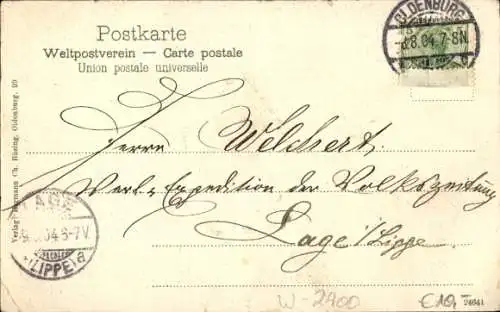 Postkarte
Weltpostverein — Carte postale
Union postale universelle
OLDENBURG
8.04.7-8N.
Herrn Welchert.
Verl.-Expedition der Volkszeitung
Lage/Lippe.
LAGE
.04 6-7V.
(LIPPE) a
Verlag Hermann Ch. Büsing, Oldenburg. 20
W-2900
€10,-
24041